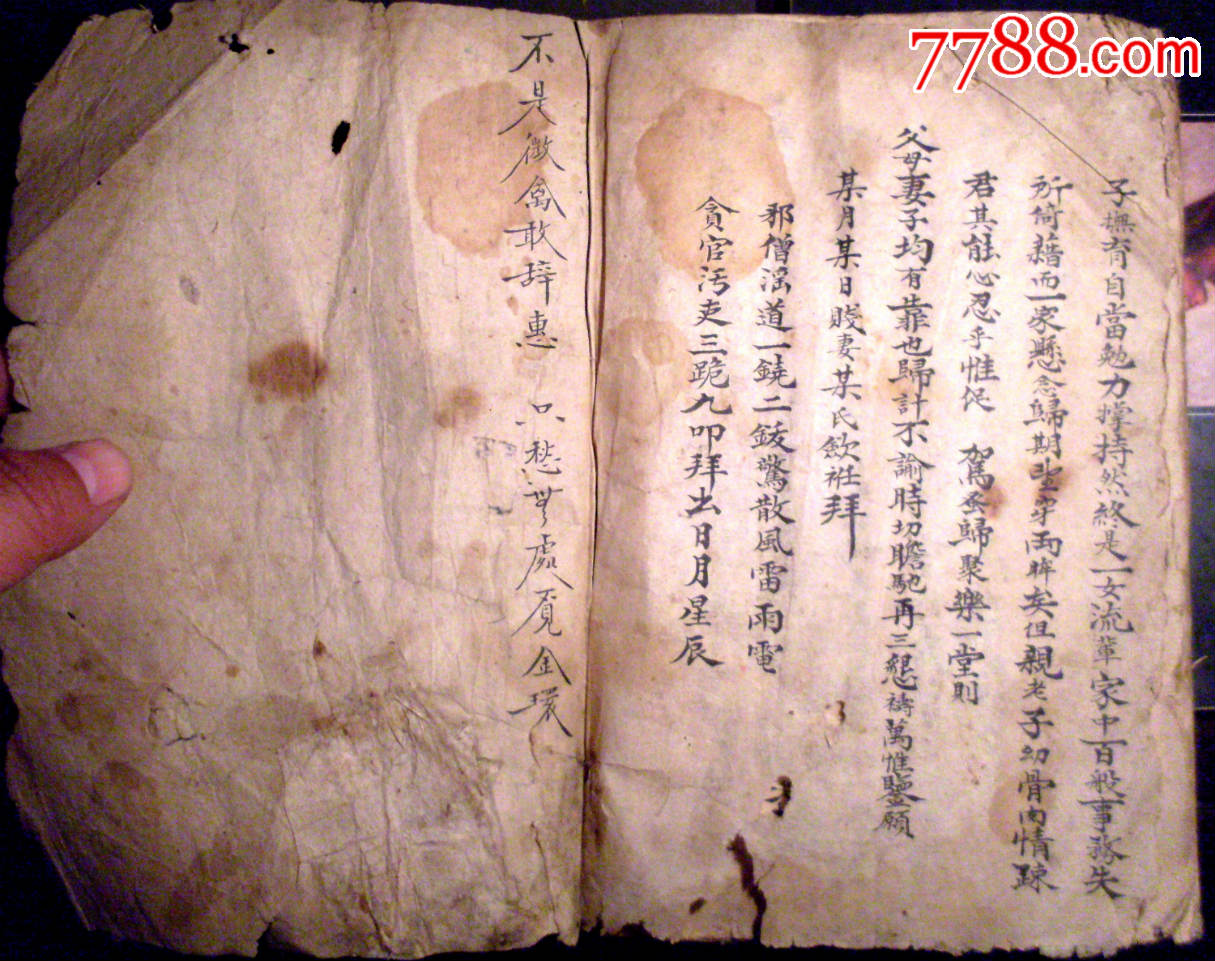 7788.com
子撫育自當勉力撐持然終是一女流輩家中百般事務失
所倚藉而一家懸念歸期望穿兩眸矣但親老子幼骨肉情踈
君其能心忍乎惟促 駕蚤歸聚樂一堂則
父母妻子均有靠也歸計不諭時切瞻馳再三懇禱萬惟鑒願
某月某日賤妻某氏歛衽拜
邪僧滛道一鐃二鈸驚散風雷雨電
貪官汚吏三跪九叩拜出日月星辰
不是微禽敢辞惠 只愁無處覓金環